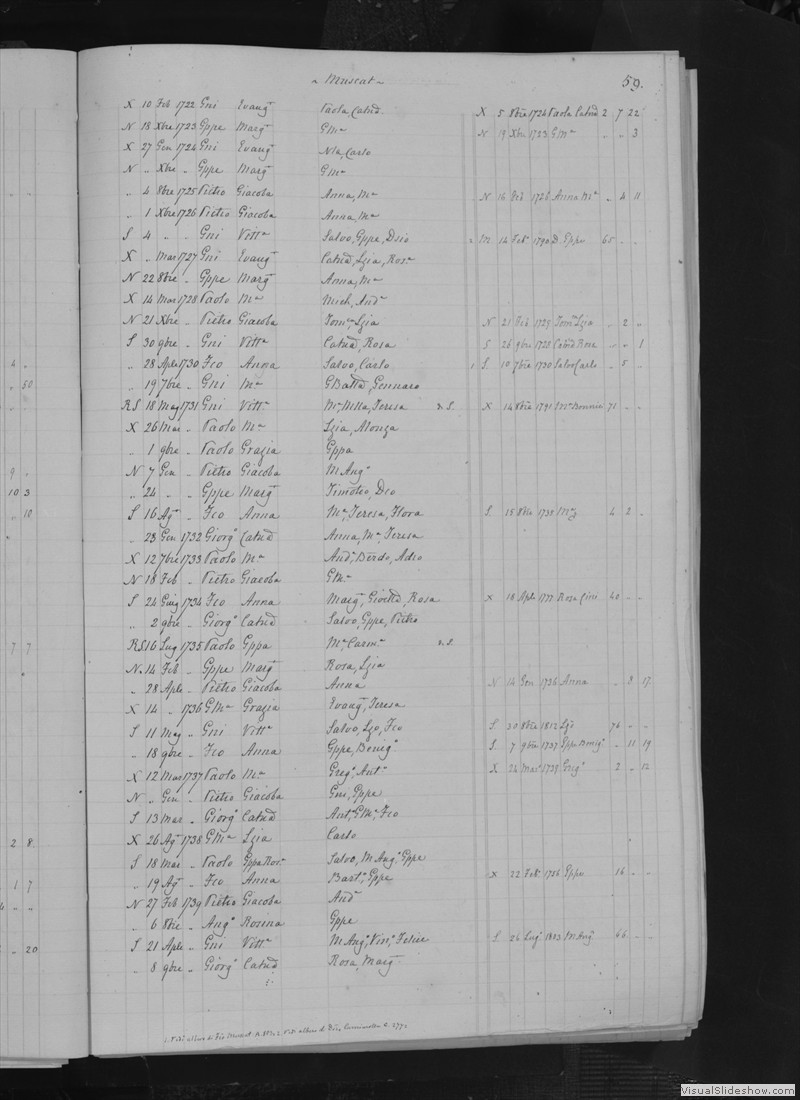 ~ Muscat ~ 59.
X 10 Feb 1722 Gni Evangta Paola, Catnd. X 5 8bre 1724 Paola Catnd 2 7 22
N 18 Xbre 1723 Gppe Margta GMa N 19 Xbre 1723 GMa " " 3
X 27 Gen 1724 Gni Evangta Nla, Carlo
N " Xbre " Gppe Margta GMa
" 4 8bre 1725 Pietro Giacoba Anna, Ma N 16 1726 Anna Ma " 4 11
" 1 Xbre 1726 Pietro Giacoba Anna, Ma
S 4 " " Gni Vitta Salvo, Gppe, Dnio 2 M 14 Feb 1790 D. Gppe 65 " "
X " Mar 1727 Gni Evangta Catnd, Lzia, Rosa
N 22 8bre " Gppe Margta Anna, Ma
X 14 Mar 1728 Paolo Ma Mich, Anda
N 21 Xbre " Pietro Giacoba Toma, Lzia N 21 1729 Toma Lzia " 2 "
S 30 9bre " Gni Vitta Catnd, Rosa S 26 9bre 1728 Catnd Rosa " " 1
4 " " 28 Aple 1730 Fco Anna Salvo, Carlo 1 S. 10 7bre 1730 Salvo Carlo " 5 "
" 50 " 19 7bre " Gni Ma GBatta, Gennaro
RS 18 Mag 1731 Gni Vitta Ma Nlla, Teresa d. S. X 14 8bre 1791 Ma Bonnia 71 " "
X 26 Mar " Paolo Ma Lzia, Alonza
" 1 9bre " Paolo Grazia Gppa
9 " N 7 Gen " Pietro Giacoba M Anga
10 3 " 24 " " Gppe Margta Timoteo, Dco
" 10 S 16 Agto " Fco Anna Ma, Teresa, Flora S 15 8bre 1735 4 2 "
" 23 Gen 1732 Giorgo Catnd Anna, Ma, Teresa
X 12 7bre 1733 Paolo Ma Anda, Berdo, Adeo
N 18 Feb " Pietro Giacoba GMa
S 24 Giug 1734 Fco Anna Margta, Giovtta, Rosa X 18 Aple 1777 Rosa 40 " "
" 2 9bre " Giorgo Catnd Salvo, Gppe, Pietro
7 7 RS 16 Lug 1735 Paolo Gppa Ma Carma d. S.
N 14 Feb " Gppe Margta Rosa, Lzia
" 28 Aple " Pietro Giacoba Anna N 14 Gen 1736 Anna " 8 17
X 14 " 1736 GMa Grazia Evangta, Teresa
S 11 Mag " Gni Vitta Salvo, Lzo, Fco S 30 8bre 1812 Lzo 76 " "
" 18 9bre " Fco Anna Gppe, Benigo S. 7 9bre 1737 Gppe Benigo " 11 19
X 12 Mar 1737 Paolo Ma Grego, Anto X 24 Mar 1739 Grego 2 " 12
N " Gen " Pietro Giacoba Gni, Gppe
S 13 Mar " Giorgo Catnd Anto, GMa, Fco
2 8 X 26 Agto 1738 GMa Lzia Carlo
S 18 Mar " Paolo Gppa Nova Salvo, M Ango, Gppe
1 7 " 19 Agto " Fco Anna Barto, Gppe X 22 Feb 1756 Gppe 16 " "
N 27 Feb 1739 Pietro Giacoba Anda
" 6 8bre " Ango Rosina Gppe
" 20 S 21 Aple " Gni Vitta M Ango, Vino, Felice S 26 Lug 1803 M Ango 66 " "
" 8 9bre " Giorgo Catnd Rosa, Margta
VisualSlideshow.com